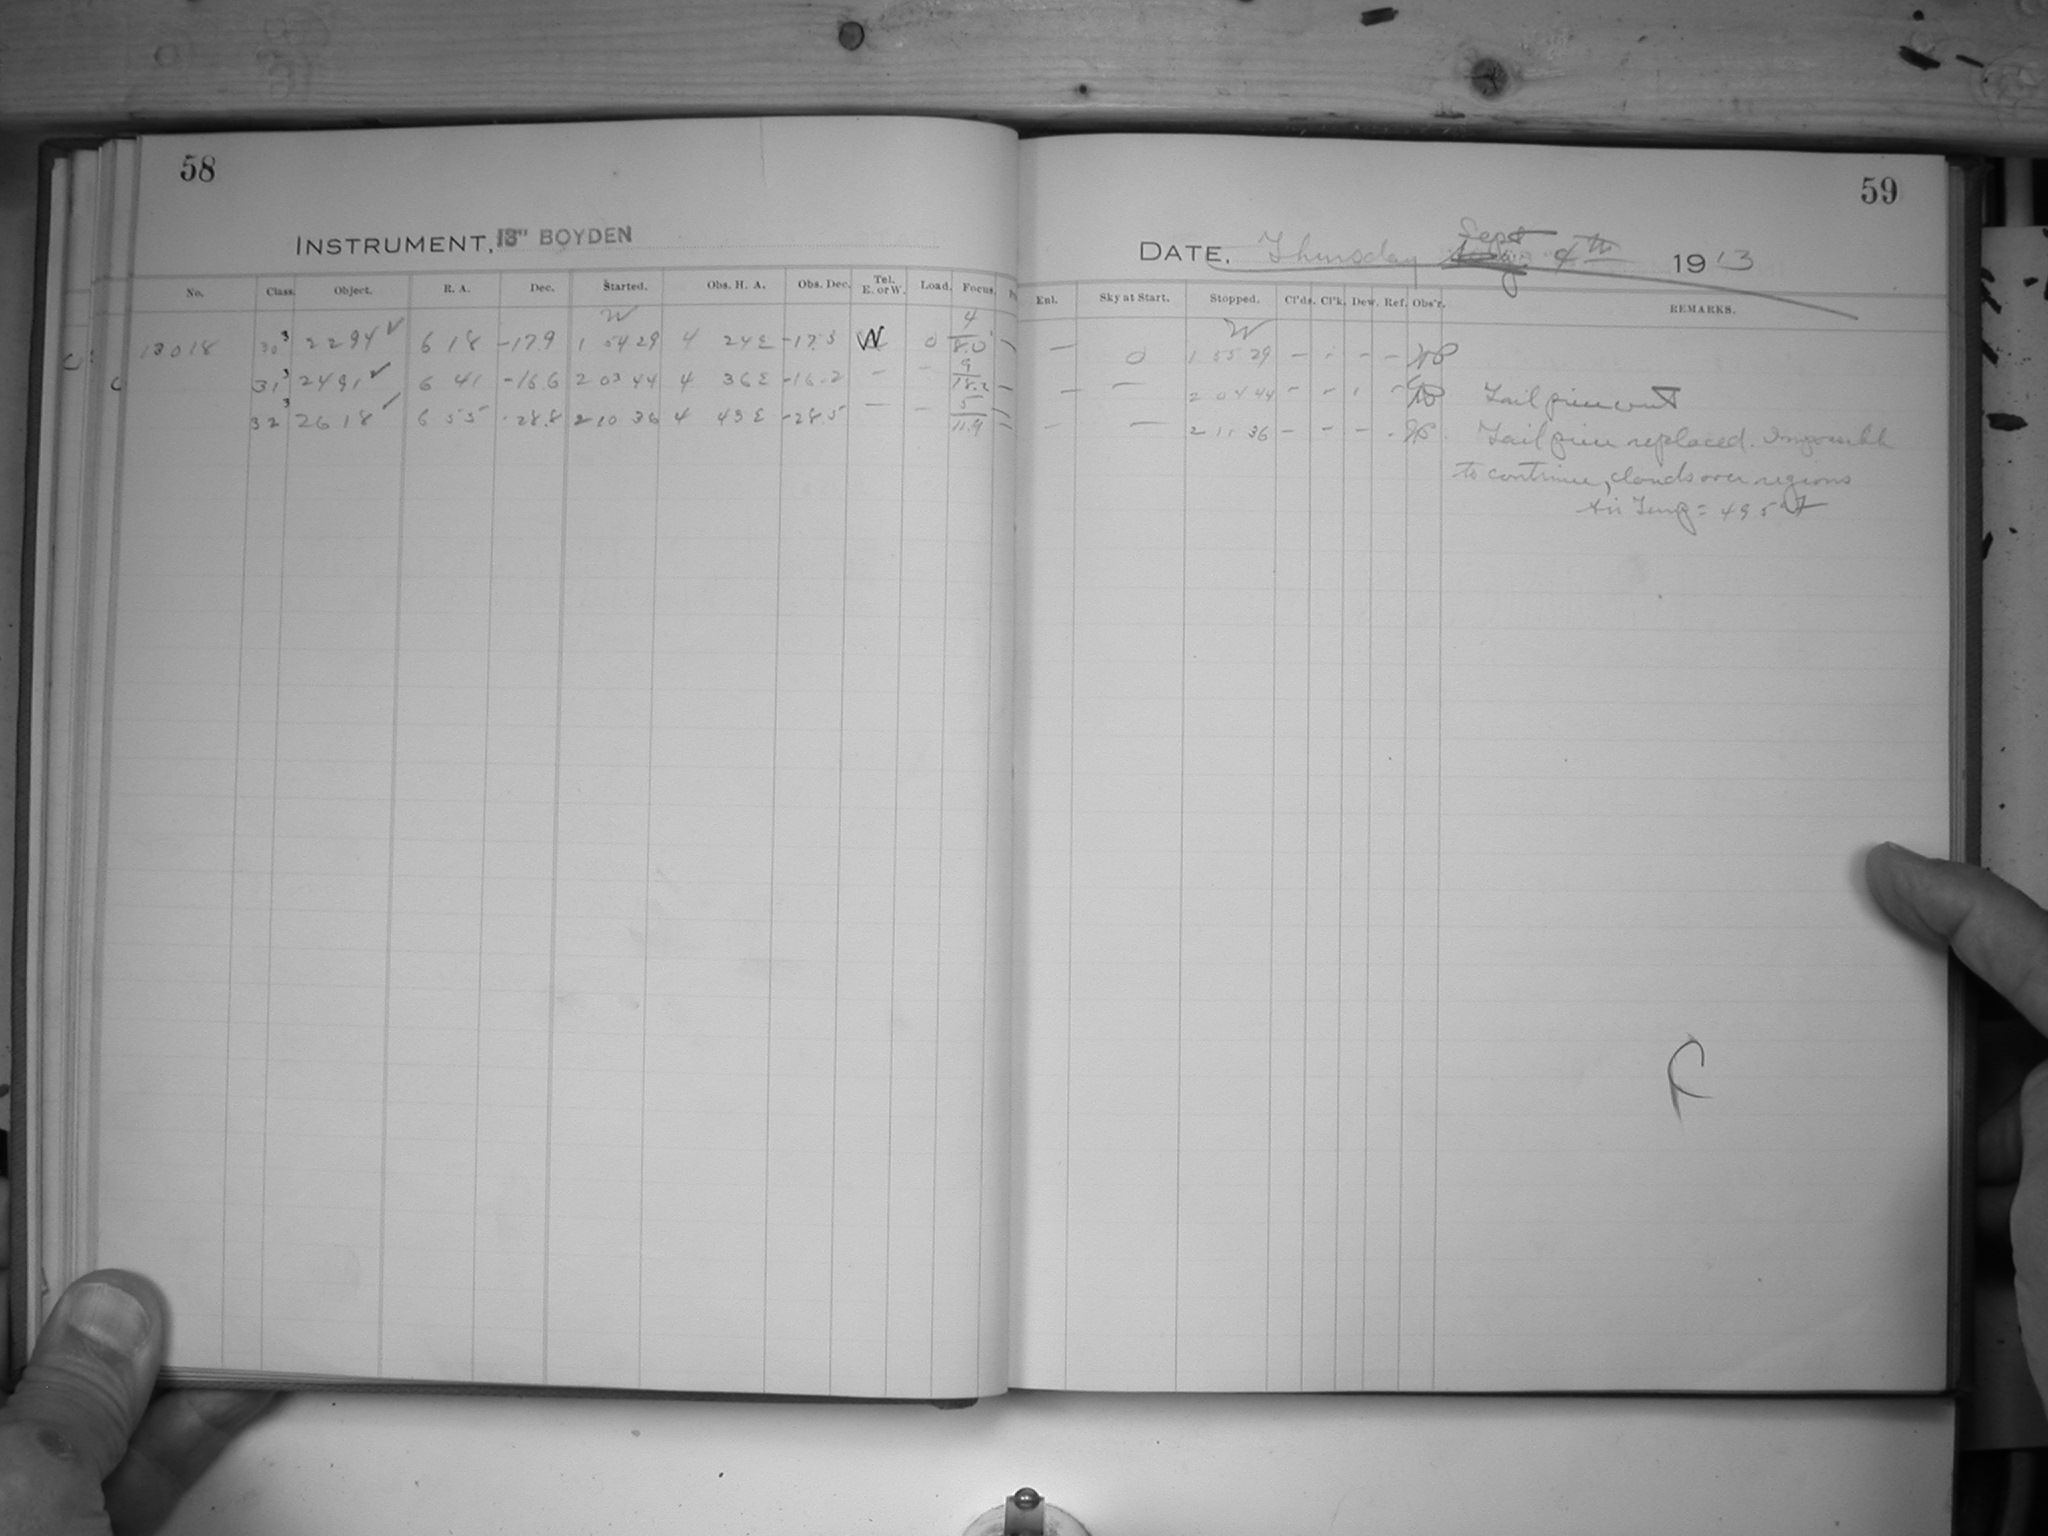 58
59
INSTRUMENT, 13" BOYDEN
DATE, Thursday Sept 4th 1913
No. Class. Object. R. A. Dec. Started. Obs. H. A. Obs. Dec. Tel. E. or W. Load. Focus. Enl. Sky at Start. Stopped. Cl'ds. Cl'k. Dew. Ref. Obs'r. REMARKS.
W 4 W
13018 30 3 2294 ✓ 6 18 -17.9 1 54 29 4 24 E -17.5 W 0 8.0 — — 0 1 55 29 — - - -
9
31 3 2491 ✓ 6 41 -16.6 2 03 44 4 36 E -16.2 — — 18.2 — — — 2 04 44 - - - - Tail piece out
5
32 3 2618 ✓ 6 55 -28.8 2 10 36 4 43 E -28.5 — — 11.9 — — — 2 11 36 — - — - Tail piece replaced. Impossible
to continue, clouds over regions
Air Temp = 49.5°